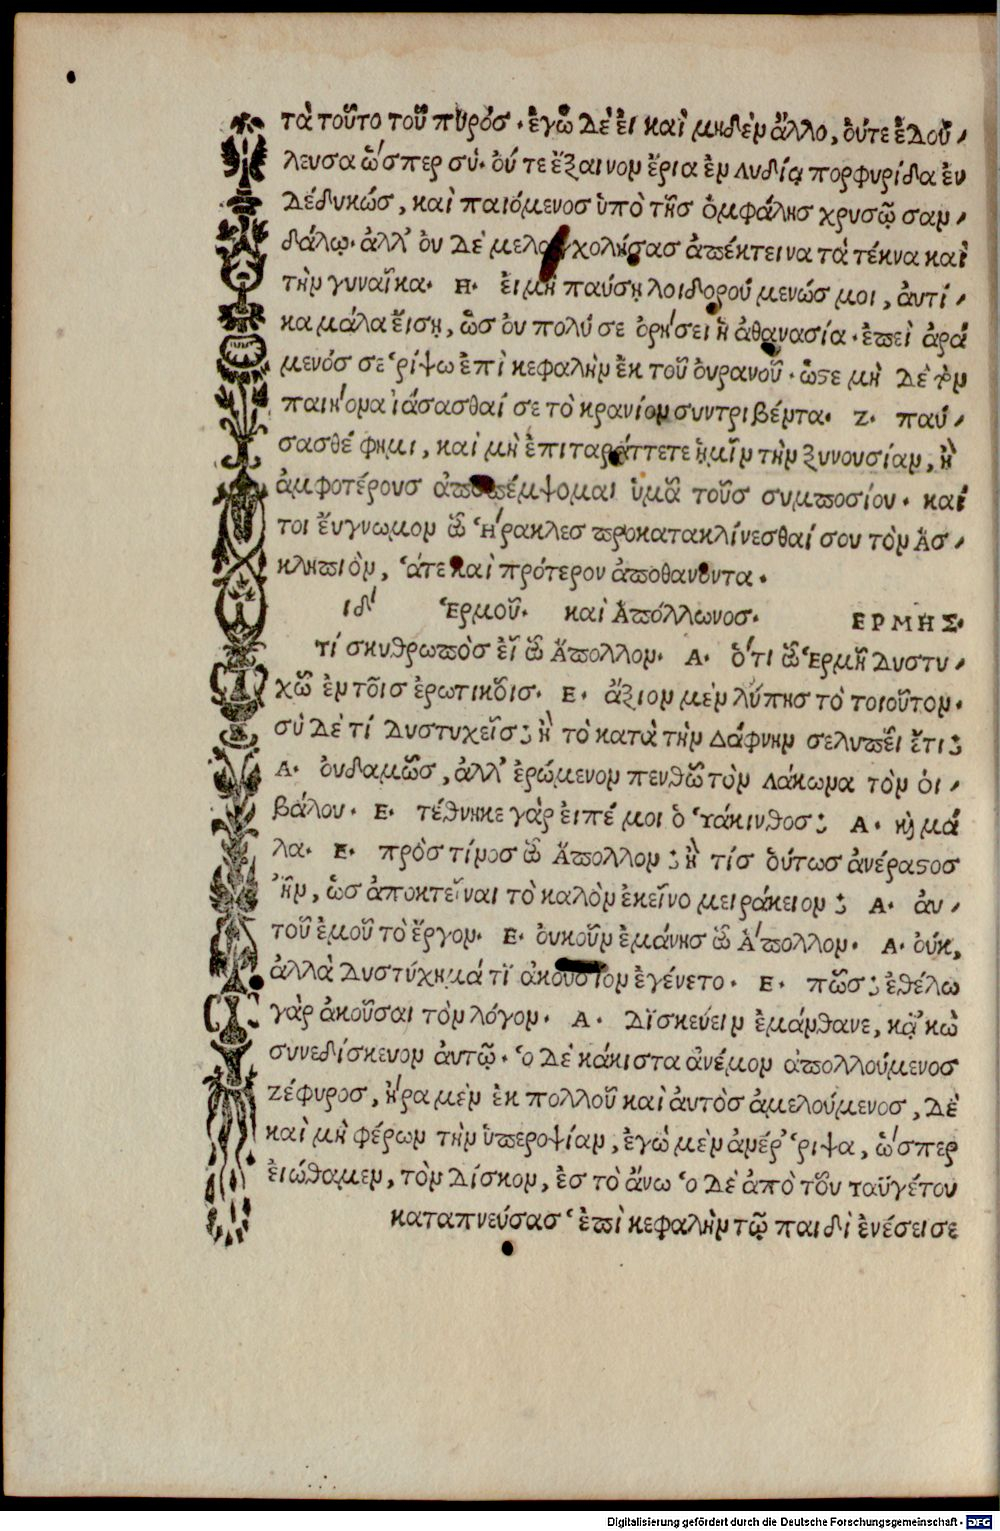 τὰ τοῦτο τοῦ πυρός. ἐγὼ δὲ εἰ καὶ μηδὲν ἄλλο, οὔτε ἐδού-
λευσα ὥσπερ σύ. οὔ τε ἔξαινον ἔρια ἐν λυδίᾳ πορφυρίδα ἐν
δέδυκώς, καὶ παιόμενος ὑπὸ τῆς ὀμφάλης χρυσῷ σαν-
δάλῳ. ἀλλ' οὐ δὲ μελαγχολήσας ἀπέκτεινα τὰ τέκνα καὶ
τὴν γυναῖκα. Η. εἰ μὴ παύσῃ λοιδορούμενός μοι, ἀυτί-
κα μάλα εἴσῃ, ὡς οὐ πολύ σε ὀνήσει ἡ ἀθανασία. ἐπεὶ ἀρά
μενός σε ῥίψω ἐπὶ κεφαλὴν ἐκ τοῦ οὐρανοῦ. ὥστε μὴ δὲ τὸν
παιήονα ἰάσασθαί σε τὸ κρανίον συντριβέντα. Ζ. παύ-
σασθέ φημι, καὶ μὴ ἐπιταράττετε ἡμῖν τὴν ξυνουσίαν, ἢ
ἀμφοτέρους ἀποπέμψομαι ὑμᾶ τοῦς συμποσίου. καί
τοι εὔγνωμον ὦ Ἡρακλες προκατακλίνεσθαί σου τὸν Ἀσ-
κληπιὸν, ἅτε καὶ πρότερον ἀποθανόντα.
ιδ' Ἑρμοῦ. καὶ Ἀπόλλωνος. ΕΡΜΗΣ.
τί σκυθρωπὸς εἶ ὦ Ἄπολλον. Α. ὅτι ὦ Ἑρμῆ δυστυ-
χῶ ἐν τοῖς ἐρωτικοῖς. Ε. ἄξιον μὲν λύπης τὸ τοιοῦτον.
σὺ δὲ τί δυστυχεῖς; ἢ τὸ κατὰ τὴν Δάφνην σε λυπεῖ ἔτι;
Α. οὐδαμῶς, ἀλλ' ἐρώμενον πενθῶ τὸν Λάκωνα τὸν ὀι-
βάλου. Ε. τέθνηκε γὰρ εἰπέ μοι ὁ Ὑάκινθος; Α. κὶ μά
λα. Ε. πρὸς τίνος ὦ Ἄπολλον; ἢ τίς οὕτως ἀνέραστος
ἦν, ὡς ἀποκτεῖναι τὸ καλὸν ἐκεῖνο μειράκειον; Α. ἀυ-
τοῦ ἐμοῦ τὸ ἔργον. Ε. οὐκοῦν ἐμάνης ὦ Ἄπολλον. Α. οὔκ,
ἀλλὰ δυστύχημά τι ἀκούσιον ἐγένετο. Ε. πῶς; ἐθέλω
γὰρ ἀκοῦσαι τὸν λόγον. Α. δισκεύειν ἐμάνθανε, κᾀκὼ
συνεδίσκευον ἀυτῷ. ὁ δὲ κάκιστα ἀνέμον ἀπολλούμενος
Ζέφυρος, ἤρα μὲν ἐκ πολλοῦ καὶ ἀυτὸς ἀμελούμενος, δὲ
καὶ μὴ φέρων τὴν ὑπεροψίαν, ἐγὼ μὲν ἀνέρ' ῥιψα, ὥσπερ
εἰώθαμεν, τὸν δίσκον, ἐς τὸ ἄνω ὁ δὲ ἀπὸ τοῦ ταϋγέτου
καταπνεύσας ἐπὶ κεφαλὴν τῷ παιδὶ ἐνέσεισε
Digitalisierung gefördert durch die Deutsche Forschungsgemeinschaft - DFG